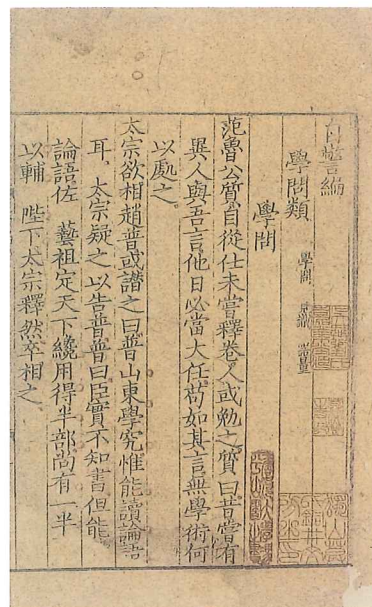 自警編
學問類 學問 器量
學問
范魯公質自從仕未嘗釋卷人或勉之質曰昔嘗有
異人與吾言他日必當大任苟如其言無學術何
以處之
太宗欲相趙普或譖之曰普山東學究惟能讀論語
耳太宗疑之以告普普曰臣實不知書但能
論語佐 藝祖定天下纔用得半部尚有一半
以輔 陛下太宗釋然卒相之